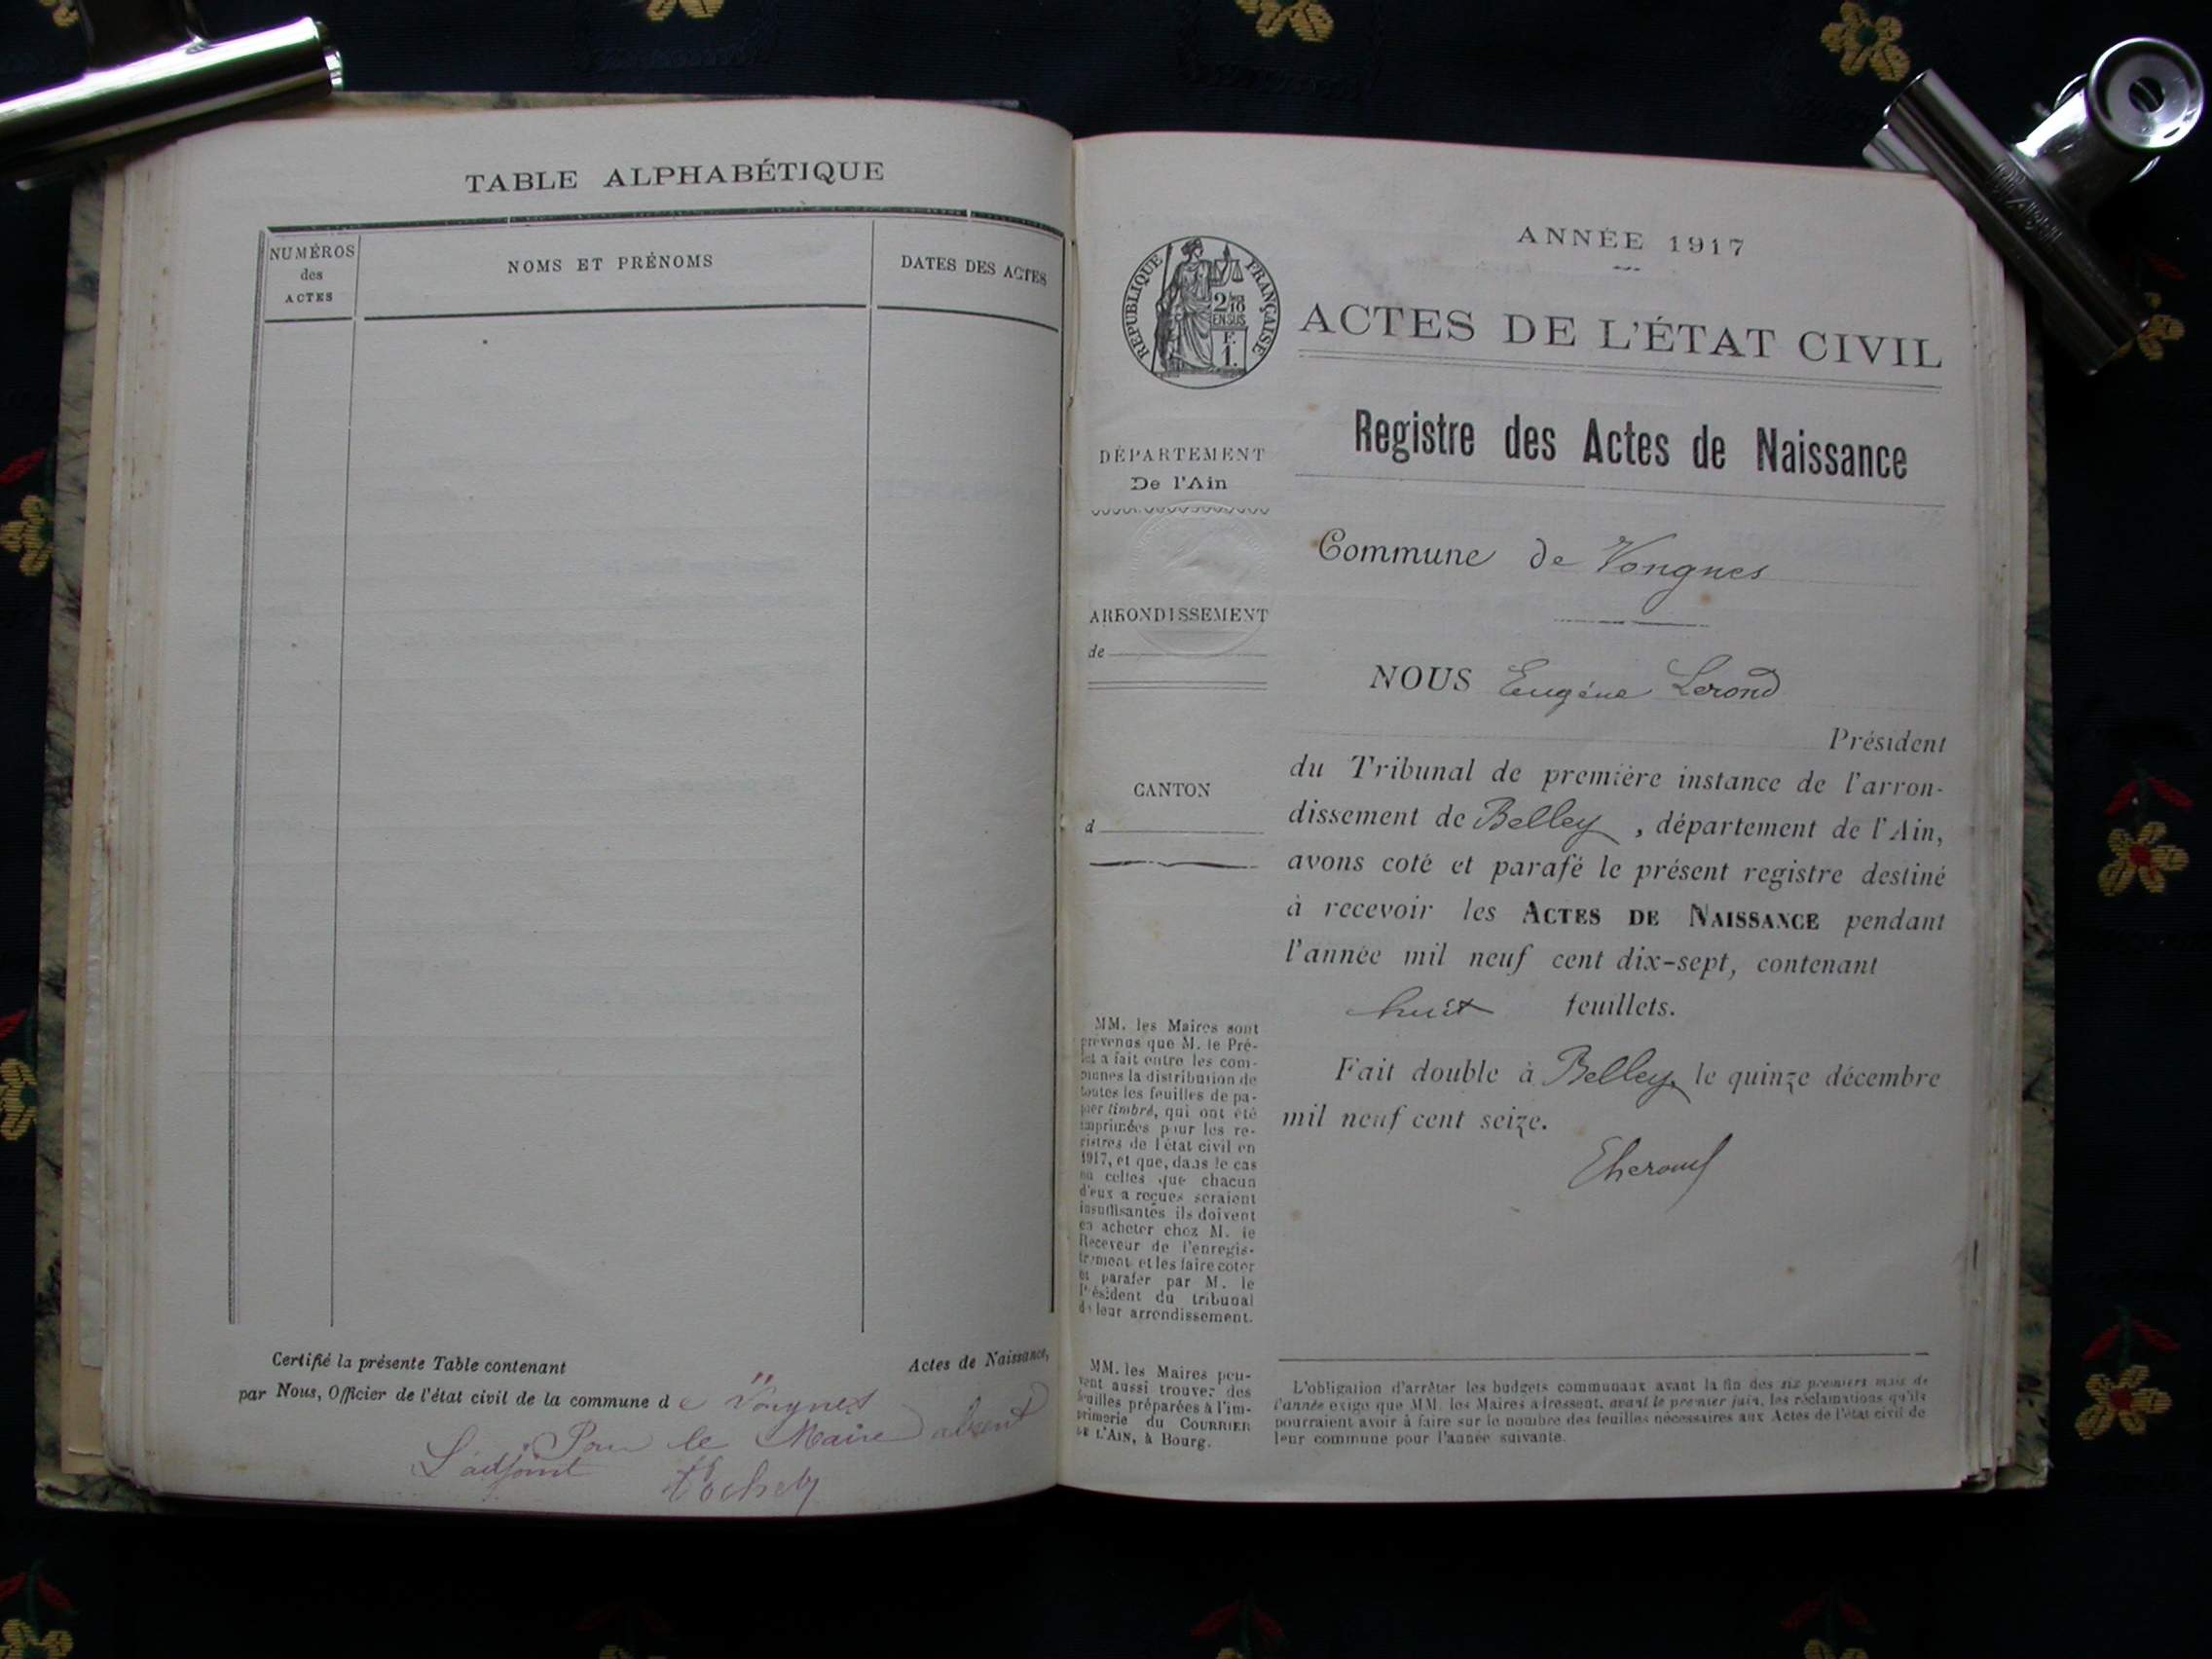 TABLE ALPHABÉTIQUE
NUMÉROS
des
ACTES
NOMS ET PRÉNOMS
DATES DES ACTES
Certifié la présente Table contenant Actes de Naissance,
par Nous, Officier de l'état civil de la commune de Vongnes
Pour le Maire absent
L'adjoint
ANNÉE 1917
RÉPUBLIQUE FRANÇAISE
2/10
EN SUS
F.
1.
ACTES DE L'ÉTAT CIVIL
Registre des Actes de Naissance
DÉPARTEMENT
De l'Ain
Commune de Vongnes
ARRONDISSEMENT
de
NOUS Eugène Lerond
Président
du Tribunal de première instance de l'arron-
dissement de Belley, département de l'Ain,
avons coté et parafé le présent registre destiné
à recevoir les ACTES DE NAISSANCE pendant
l'année mil neuf cent dix-sept, contenant
huit feuillets.
Fait double à Belley, le quinze décembre
mil neuf cent seize.
CANTON
d
MM. les Maires sont
prévenus que M. le Pré-
fet a fait entre les com-
munes la distribution de
toutes les feuilles de pa-
pier timbré, qui ont été
imprimées pour les re-
gistres de l'état civil en
1917, et que, dans le cas
où celles que chacun
d'eux a reçues seraient
insuffisantes ils doivent
en acheter chez M. le
Receveur de l'enregis-
trement et les faire coter
et parafer par M. le
Président du tribunal
de leur arrondissement.
MM. les Maires peu-
vent aussi trouver des
feuilles préparées à l'im-
primerie du COURRIER
DE L'AIN, à Bourg.
L'obligation d'arrêter les budgets communaux avant la fin des six premiers mois de
l'année exige que MM. les Maires adressent, avant le premier juin, les réclamations qu'ils
pourraient avoir à faire sur le nombre des feuilles nécessaires aux Actes de l'état civil de
leur commune pour l'année suivante.